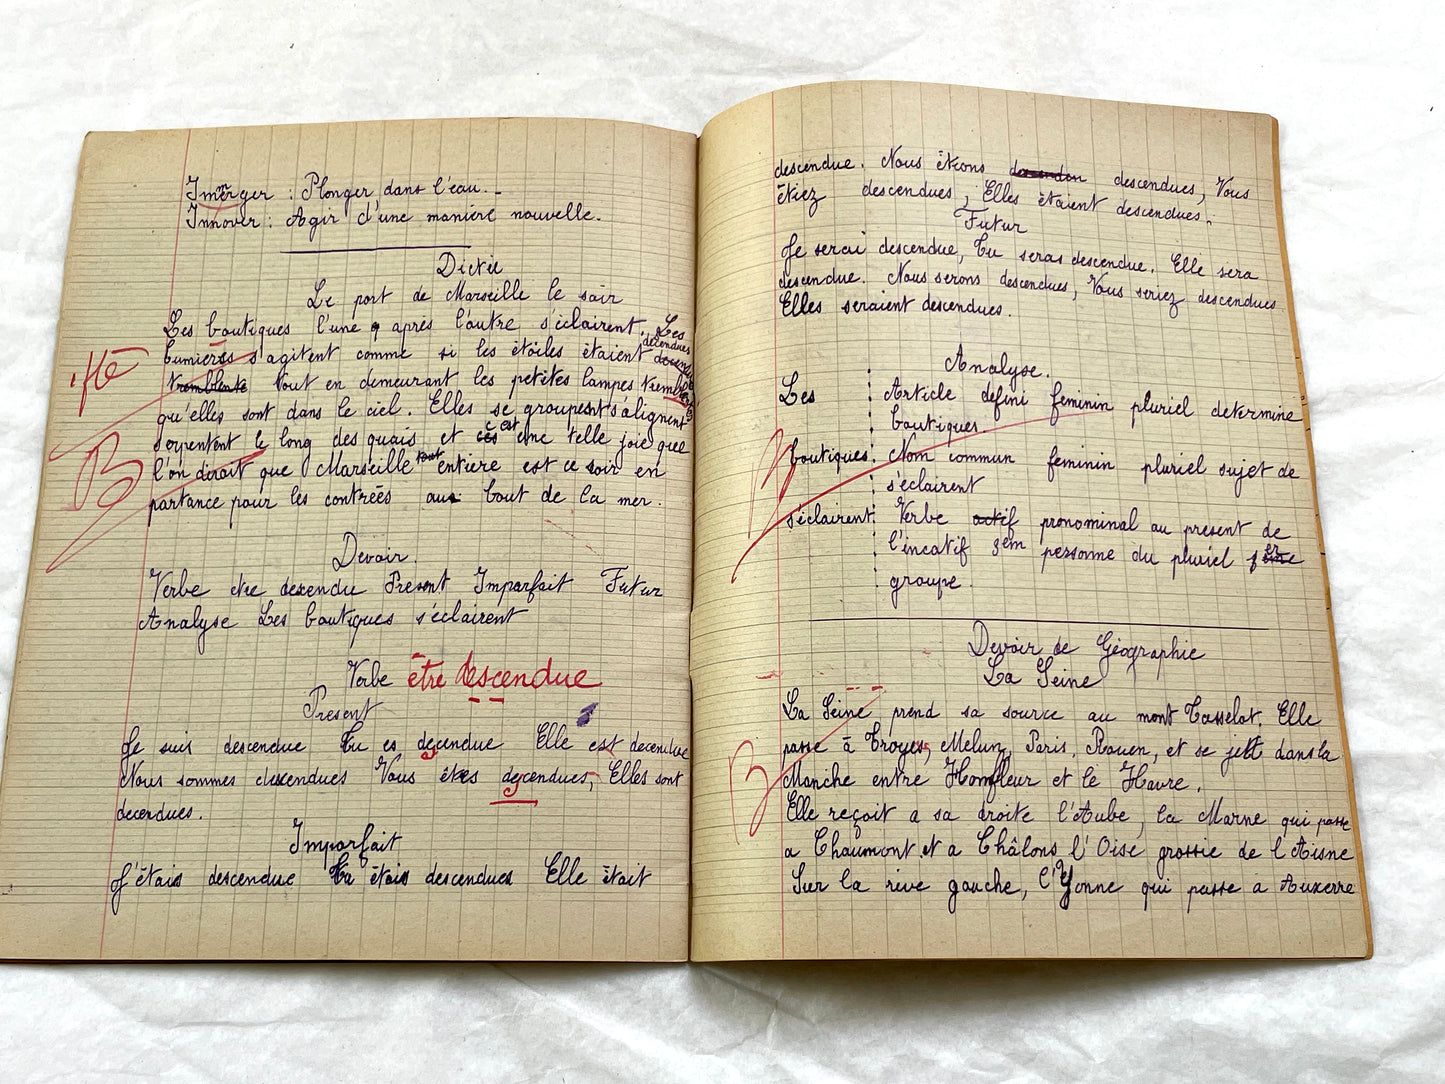 Immerger : Plonger dans l'eau.
Innover : Agir d'une manière nouvelle.
Dictée
Le port de Marseille le soir
Les boutiques l'une après l'autre s'éclairent. Les
lumières s'agitent comme si les étoiles étaient decendues
tremblante tout en demeurant les petites lampes
1 fte
qu'elles sont dans le ciel. Elles se groupent s'alignent
serpentent le long des quais et c'est une telle joie que
B
l'on dirait que Marseille tout entière est ce soir en
partance pour les contrées au bout de la mer.
Devoir.
Verbe etre decendu Présent Imparfait Futur
Analyse Les boutiques s'éclairent
Verbe être descendue
Present
Je suis descendue Tu es descendue Elle est decendue
Nous sommes descendues Vous êtes descendues, Elles sont
decendues.
Imparfait
J'étais descendue Tu étais descendues Elle était
descendue. Nous étions descendues, Vous
étiez descendues ; Elles étaient descendues.
Futur
Je serai descendue, Tu seras descendue. Elle sera
descendue. Nous serons descendues, Vous seriez descendues
Elles seraient descendues.
Analyse.
Les : Article défini feminin pluriel determine
boutiques.
B
boutiques : Nom commun feminin pluriel sujet de
s'éclairent
s'éclairent : Verbe actif pronominal au present de
l'incatif 3em personne du pluriel 1er
groupe.
Devoir de Géographie
La Seine
La Seine prend sa source au mont Tasselot. Elle
passe à Troyes, Melun, Paris, Rouen, et se jett dans la
B
Manche entre Honfleur et le Havre.
Elle reçoit a sa droite l'Aube, la Marne qui passe
a Chaumont et a Châlons l'Oise grossie de l'Aisne
Sur la rive gauche, l'Yonne qui passe à Auxerre